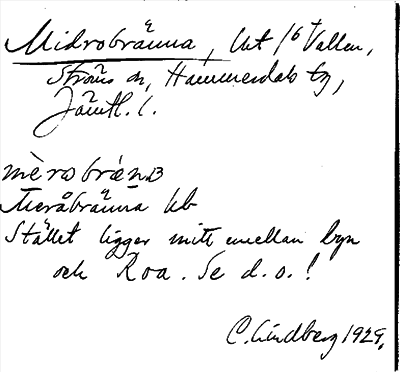 Midrobränna, Ut /6 Vallen,
Ströms sn, Hammerdals tg,
Jämtl. l.
mèrobrǽnɒ
Meråbränna ub
Stället ligger mitt emellan byn
och Roa. Se d.o.!
C. Lindberg 1929.